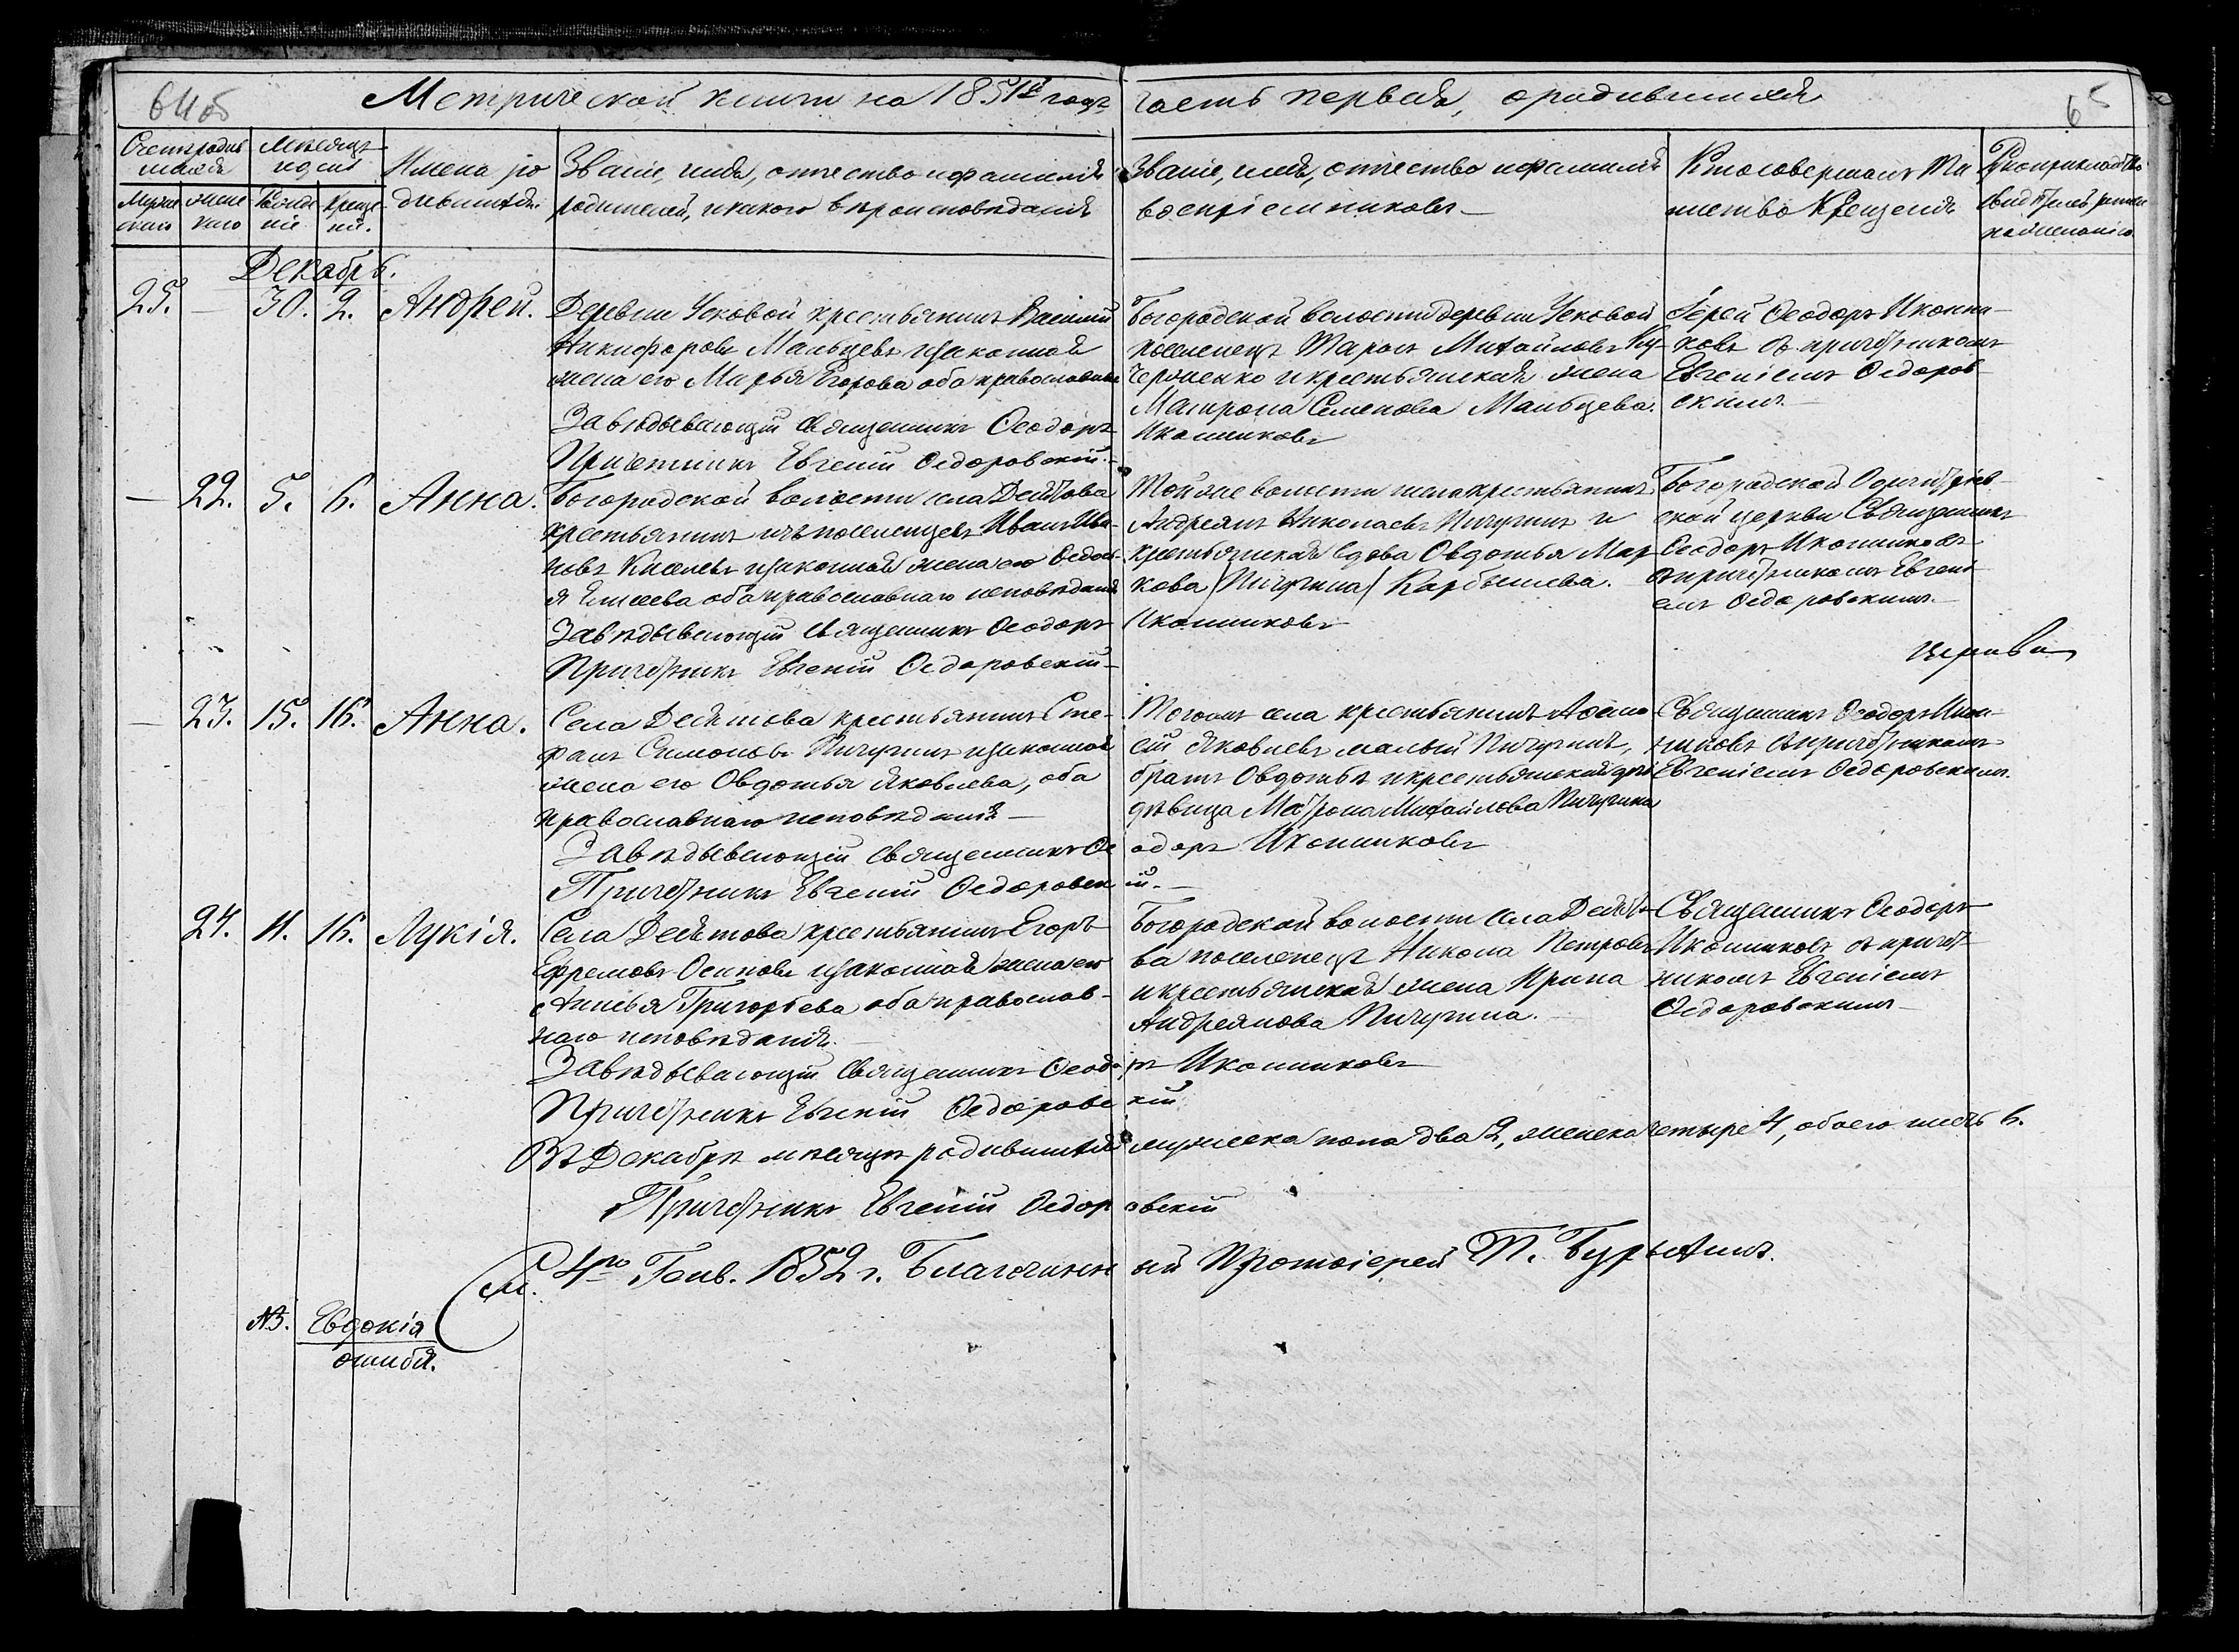 64об
65
Метрической книги на 1851й годъ, часть первая, о родившихся
Счетъ родив
шихся
Мужес
каго
женс
каго
Месяцъ
и день
Рожде
нiе.
Креще
нiе.
Имена ро
дившихся.
Званiе, имя, отчество и фамилiя
родителей, и какого вероисповѣданiя
Званiе, имя, отчество и фамилiя
воспрiемниковъ
Кто совершалъ Та
инство Крещенiя
Рукоприкладство
свидѣтелей записи
по желанiю
Декабрь.
25. — 30. 2. Андрей.
Деревни Усковой крестьянинъ Василiй
Никифоровъ Мальцевъ и законная
жена его Марья Егорова оба православные
Завѣдывающiй священникъ Ѳеодоръ
Иконниковъ
Причетникъ Евгенiй Ѳедоровскiй.
Богородской волости деревни Усковой
поселенецъ Тарасъ Михайловъ Ку-
черженко и крестьянская жена
Матрона Семенова Мальцева.
Iерей Ѳеодоръ Иконни-
ковъ съ причетникомъ
Евгенiемъ Ѳедоров-
скимъ.
— 22. 5. 6. Анна.
Богородской волости села Десятова
крестьянинъ изъ поселенцевъ Иванъ Ива-
новъ Киселевъ и законная жена его Ѳедось-
я Елисеева оба православнаго исповѣданiя
Завѣдывающiй священникъ Ѳеодоръ
Иконниковъ
Причетникъ Евгенiй Ѳедоровскiй
Той же волости и села крестьянинъ
Андреянъ Николаевъ Пичугинъ и
крестьянская вдова Овдотья Мар-
кова (Пичугина) Карбышева.
Богородской Одигитрiев-
ской церкви Священникъ
Ѳеодоръ Иконниковъ
съ причетникомъ Евгенi-
емъ Ѳедоровскимъ.
церкви
— 23. 15. 16. Анна.
Села Десятова крестьянинъ Сте-
фанъ Симоновъ Пичугинъ и законная
жена его Овдотья Яковлева, оба
православнаго исповѣданiя
Завѣдывающiй священникъ Ѳеодоръ Иконниковъ
Причетникъ Евгенiй Ѳедоровскiй.
Тогожъ села крестьянинъ
Яковлевъ малый Пичугинъ,
братъ Овдотьѣ и крестьянская
дѣвица Матрона Михайлова Пичугина
Священникъ Ѳеодоръ Икон-
никовъ съ причетникомъ
Евгенiемъ Ѳедоровскимъ.
24. 11. 16. Лукiя.
Села Десятова крестьянинъ Егоръ
Ефремовъ Осиповъ и законная жена его
Анисья Григорьева оба православ-
наго исповѣданiя.
Завѣдывающiй Священникъ Ѳеодоръ Иконниковъ
Причетникъ Евгенiй Ѳедоровскiй
Богородской волости села Десято-
ва поселенецъ Никола Петровъ
и крестьянская жена Ирина
Андреянова Пичугина.
Священникъ Ѳеодоръ
Иконниковъ съ причет-
никомъ Евгенiемъ
Ѳедоровскимъ
Въ Декабрѣ мѣсяцѣ родившихся мужеска пола два 2, женска четыре 4, обоего шесть 6.
Причетникъ Евгенiй Ѳедоровскiй
4го Генв. 1852 г. Благочинный Протоiерей П. Бурыхинъ.
NB. Евдокiя
ошибк.